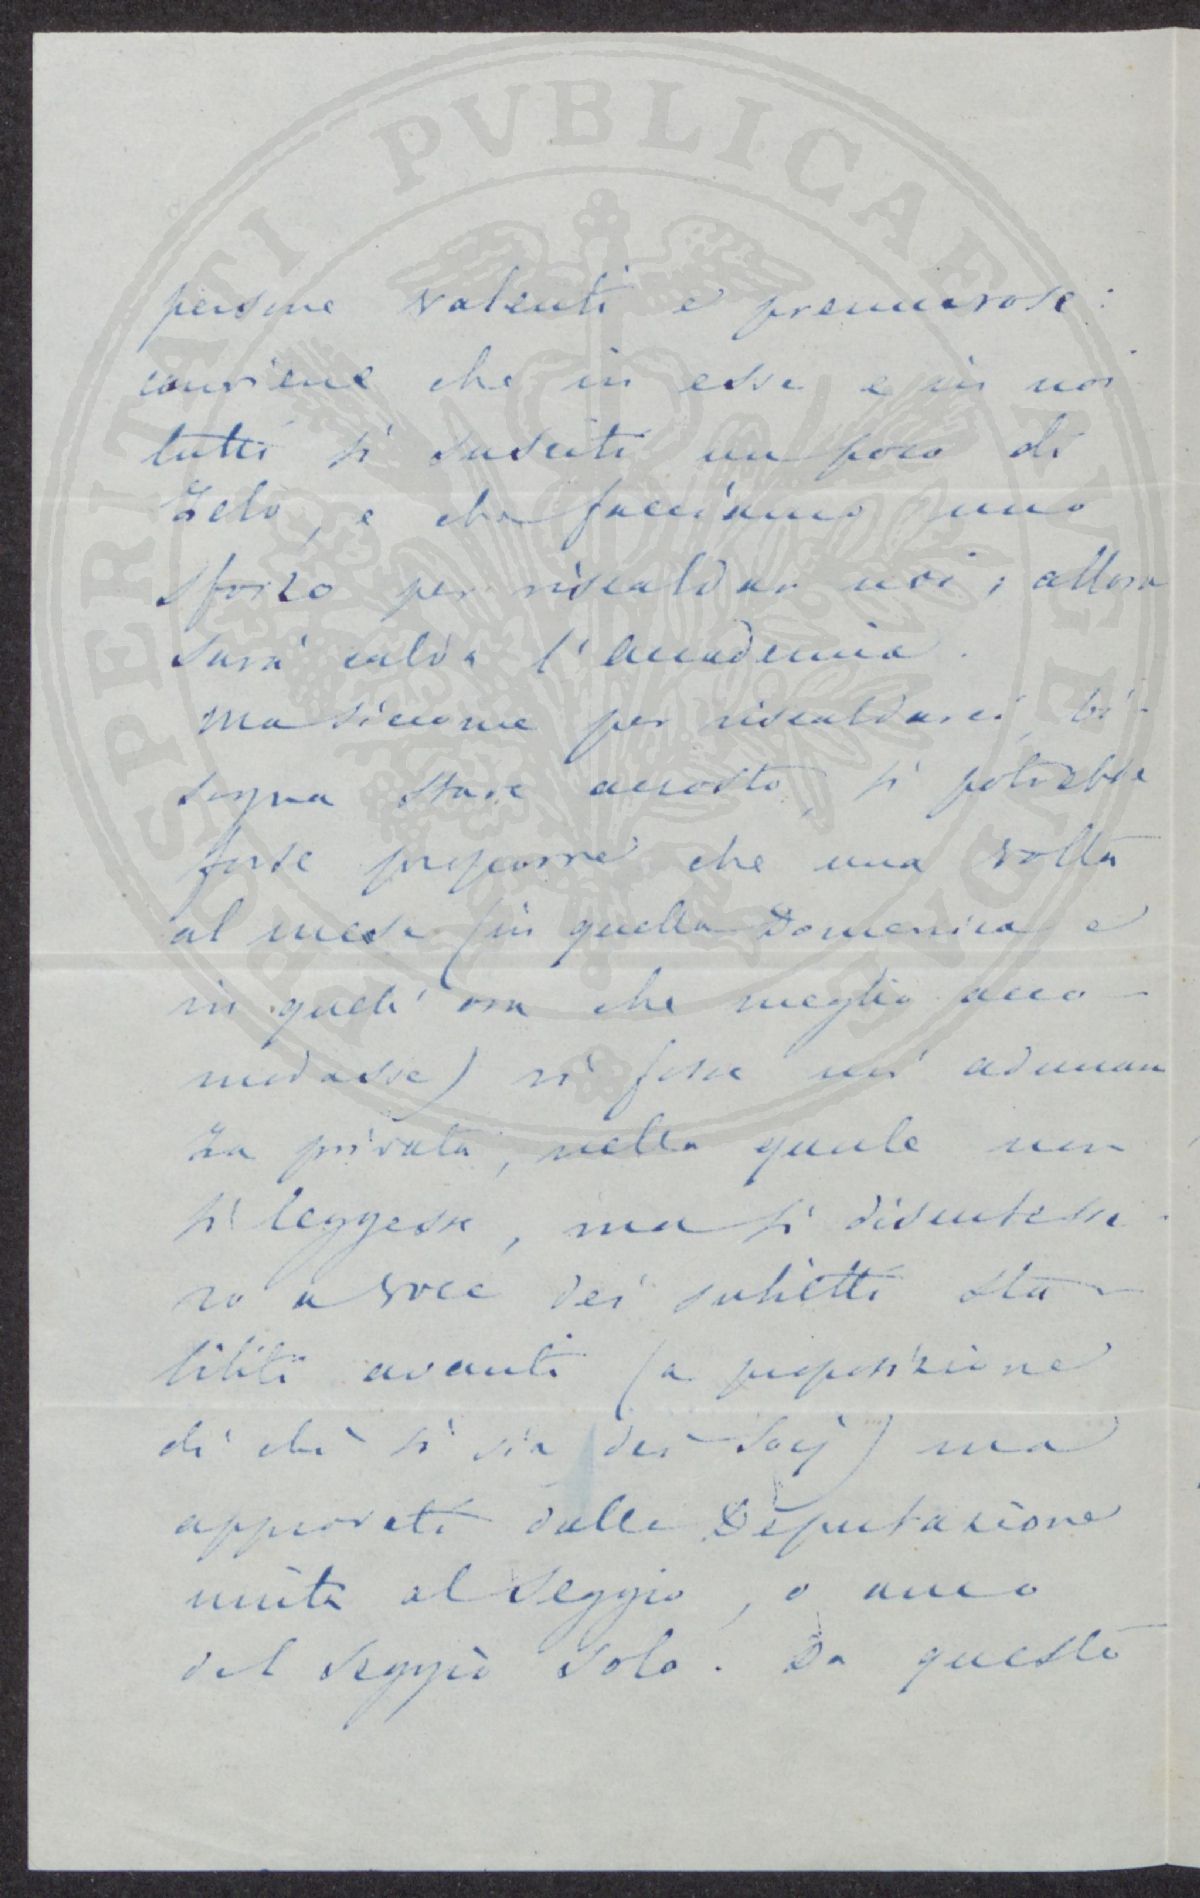 PROSPERITATI PVBLICAE AVGENDAE
persone valenti e premurose:
conviene che in esse e in noi
tutti si susciti un poco di
zelo, e che facciamo uno
sforzo per riscaldar noi; allora
sarà calda l'accademia.
Ma siccome per riscaldarci, bi-
sogna stare accosto, si potrebbe
forse proporre che una volta
al mese (in quella Domenica e
in quell'ora che meglio acco-
modasse) si fosse un'adunan
za privata, nella quale non
si leggesse, ma si discutesse-
ro a voce dei subietti sta-
biliti avanti (a proposizione
di chi si sia dei Socj) ma
approvati dalla Deputazione
unita al Seggio, o anco
dal Seggio solo. Da questo